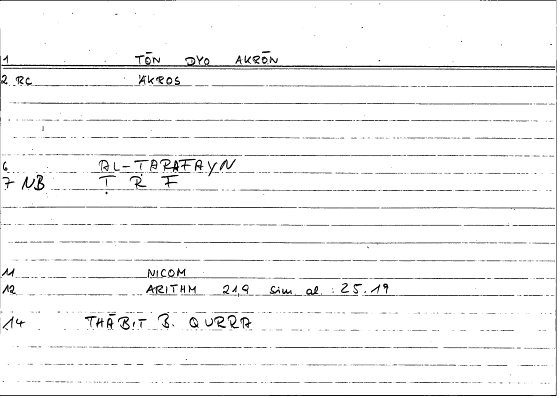 1 TŌN DYO AKRŌN
2 RC AKROS
6 AL-ṬARAFAYN
7 NB Ṭ R F
11 NICOM
12 ARITHM 21,9 sim. al. : 25.19
14 THĀBIT B. QURRA